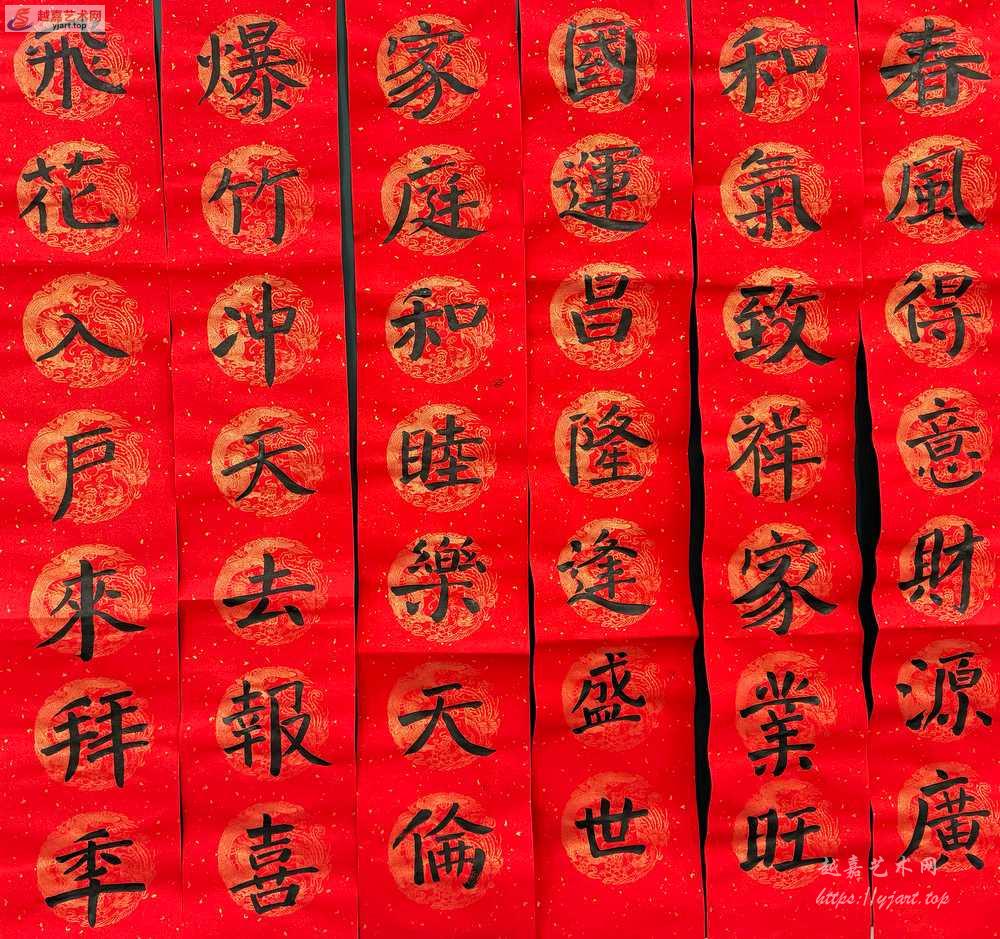 春風得意財源廣
和氣致祥家業旺
國運昌隆逢盛世
家庭和睦樂天倫
爆竹冲天去報喜
飛花入戶來拜年
越嘉艺术网
yjart.top
越嘉艺术网
https://yjart.top